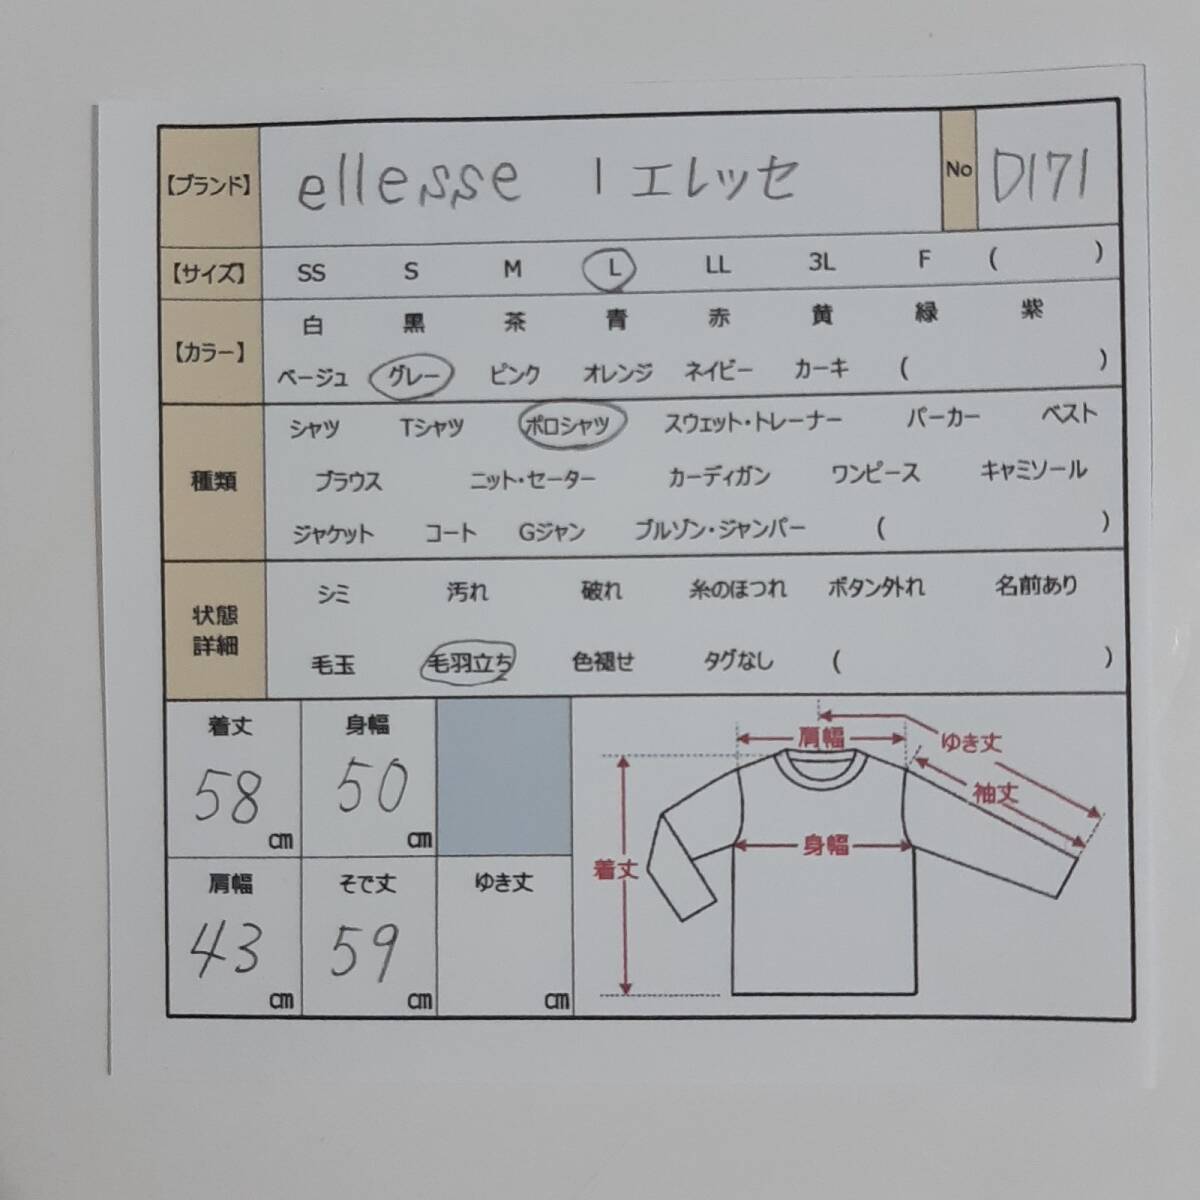 【ブランド】 ellesse | エレッセ No D171
【サイズ】 SS S M L LL 3L F ( )
白 黒 茶 青 赤 黄 緑 紫
【カラー】
ベージュ グレー ピンク オレンジ ネイビー カーキ ( )
シャツ Tシャツ ポロシャツ スウェット・トレーナー パーカー ベスト
種類 ブラウス ニット・セーター カーディガン ワンピース キャミソール
ジャケット コート Gジャン ブルゾン・ジャンパー ( )
シミ 汚れ 破れ 糸のほつれ ボタン外れ 名前あり
状態
詳細
毛玉 毛羽立ち 色褪せ タグなし ( )
着丈 身幅
58 cm 50 cm
肩幅 そで丈 ゆき丈
43 cm 59 cm cm
肩幅
ゆき丈
袖丈
身幅
着丈